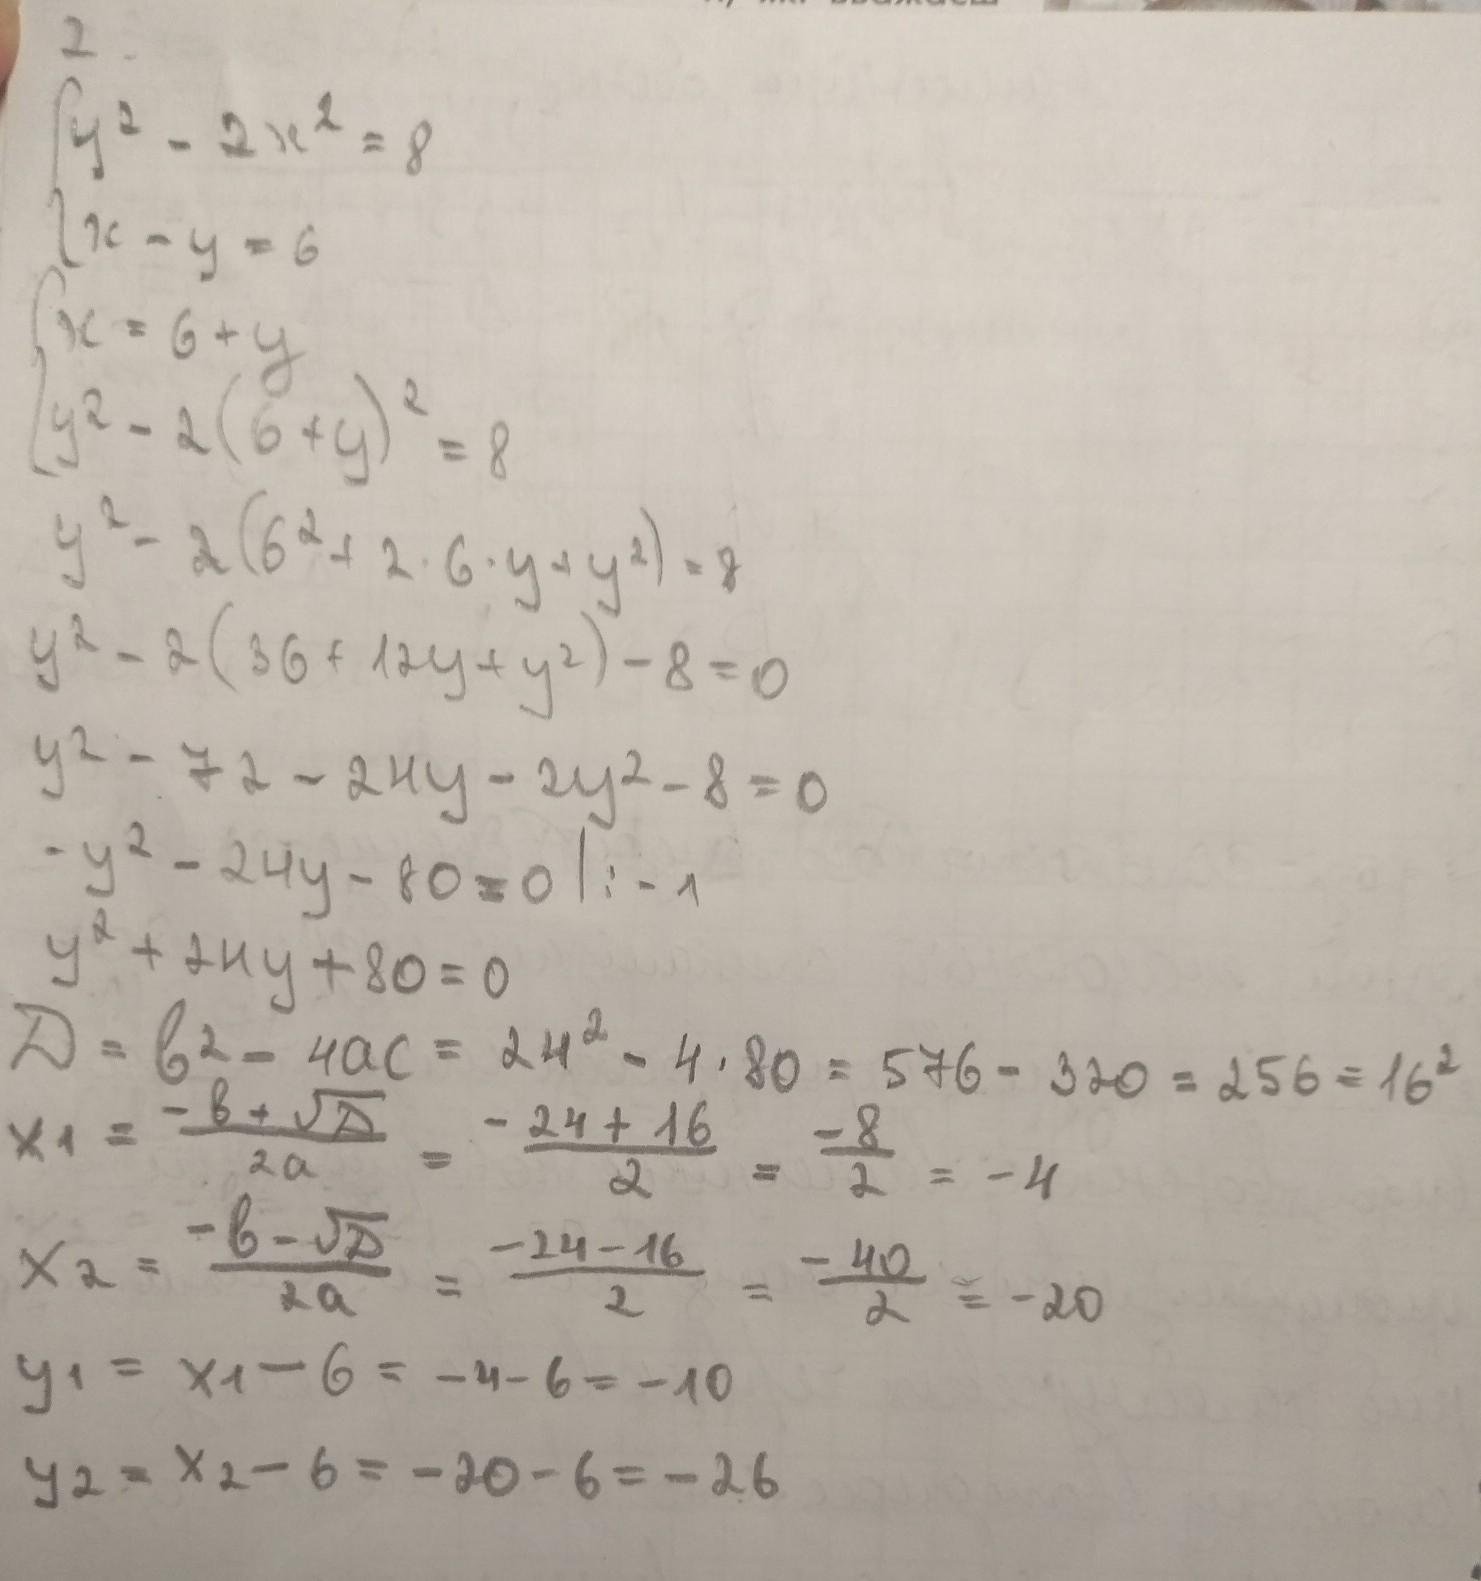 вважаєш
2.
y² - 2x² = 8
x - y = 6
x = 6 + y
y² - 2(6 + y)² = 8
y² - 2(6² + 2·6·y + y²) = 8
y² - 2(36 + 12y + y²) - 8 = 0
y² - 72 - 24y - 2y² - 8 = 0
-y² - 24y - 80 = 0 |: -1
y² + 24y + 80 = 0
D = b² - 4ac = 24² - 4·80 = 576 - 320 = 256 = 16²
x1 = (-b + √D)/2a = (-24 + 16)/2 = -8/2 = -4
x2 = (-b - √D)/2a = (-24 - 16)/2 = -40/2 = -20
y1 = x1 - 6 = -4 - 6 = -10
y2 = x2 - 6 = -20 - 6 = -26